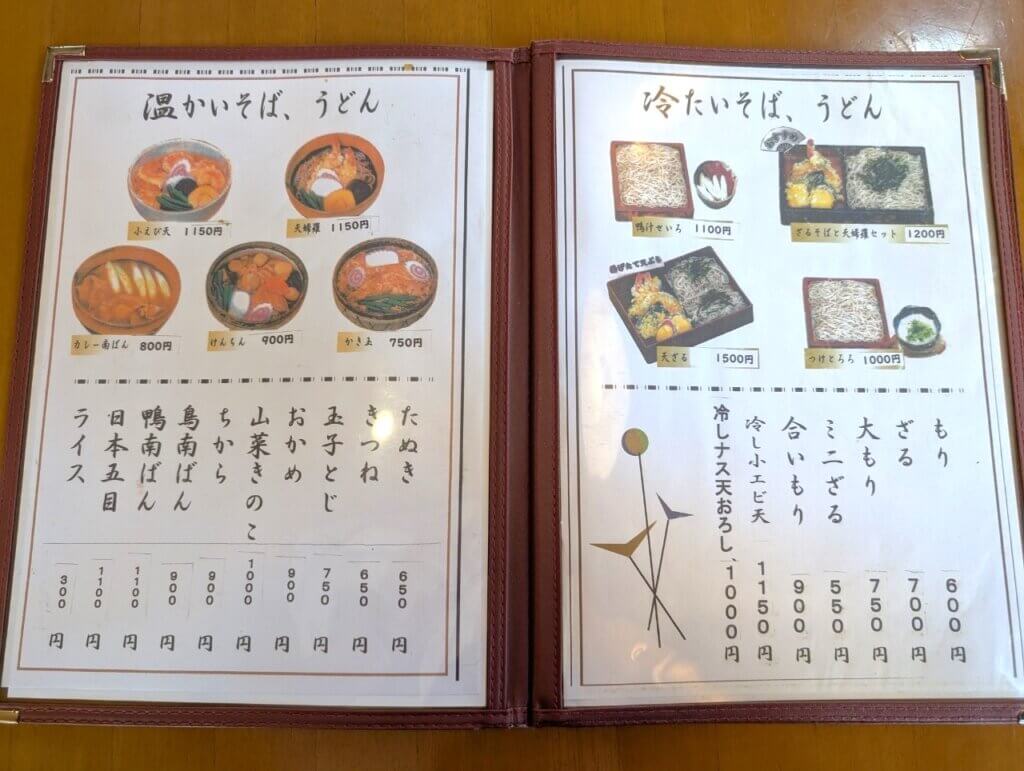 温かいそば、うどん
小えび天 1150円
天婦羅 1150円
カレー南ばん 800円
けんちん 900円
かき玉 750円
たぬき 650円
きつね 650円
玉子とじ 750円
おかめ 900円
山菜きのこ 1000円
ちから 900円
鳥南ばん 900円
鴨南ばん 1100円
日本五目 1100円
ライス 300円
冷たいそば、うどん
鴨汁せいろ 1100円
おすすめ
ざるそばと天婦羅セット 1200円
揚げたて天ぷら
天ざる 1500円
つけとろろ 1000円
もり 600円
ざる 700円
大もり 750円
ミニざる 550円
合いもり 900円
冷し小エビ天 1150円
冷しナス天おろし、1000円